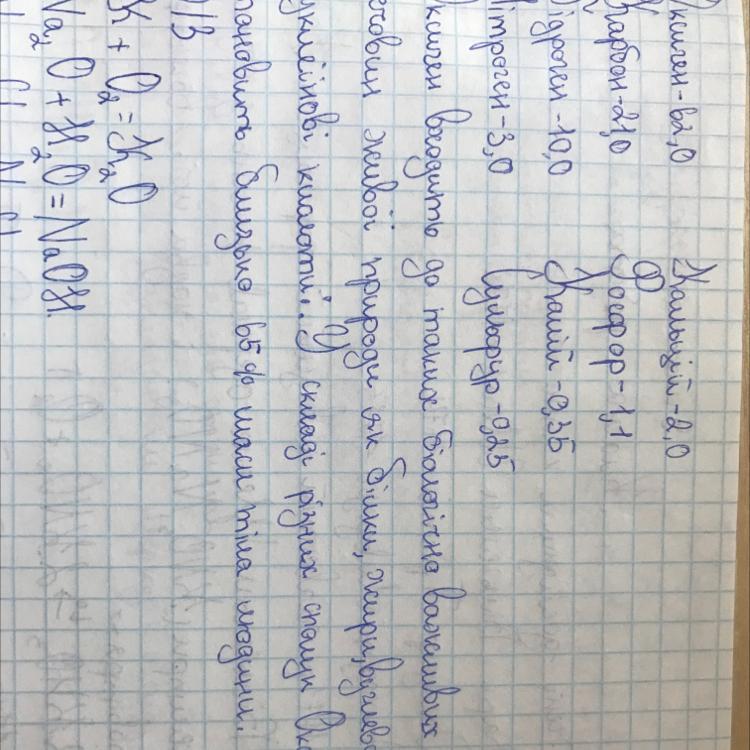 ксиген-62,0 Кальцій-2,0
Карбон-21,0 Фосфор-1,1
ідроген-10,0 Калій-0,35
ітроген-3,0 Сульфур-0,25
ксиген входить до таких біологічно важливих
ечовин живої природи як білки, жири, вуглево
уклеїнові кислоти. У складі різних сполук Окс
тановить близько 65% маси тіла людини.
Д/З
K + O₂ = K₂O
Na₂O + H₂O = NaOH